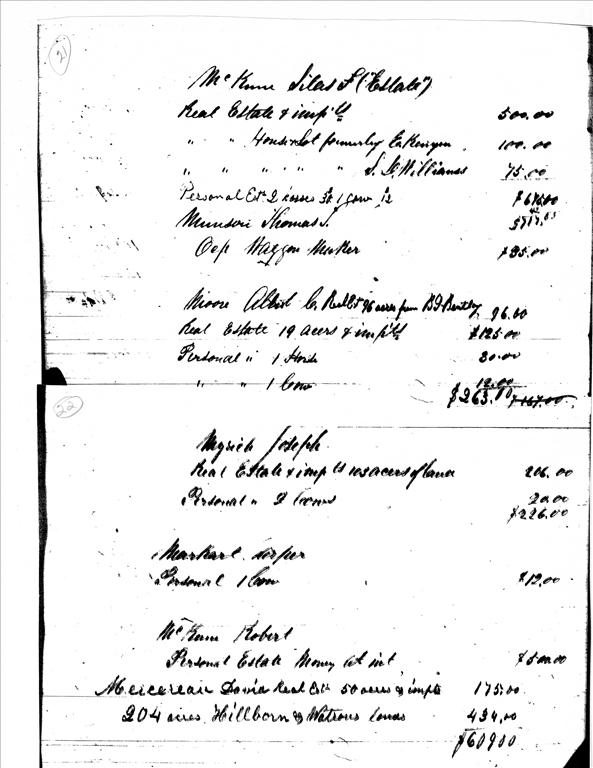 21
McKune Silas F ("Estate")
Real Estate & imp'ts 500.00
" " House & Lot formerly E. Kenyon 100.00
" " " " " " S. D. Williams 75.00
Personal Est. 2 1 Cow 12
Munson Thomas S.
Occ Waggon Maker $35.00
Moore Albert C. Real Est 96 acres from B. F. Bentley 96.00
Real Estate 19 acers & imp'ts $125.00
Personal " 1 Horse 30.00
" " 1 Cow 12.00
$263.00 $167.00
22
Myrick Joseph
Real Estate & imp'ts 103 acers of land 206.00
Personal " 2 Cows 20.00
$226.00
Personal 1 Cow $12.00
McKune Robert
Personal Estate Money at int $500.00
Mercereau David Real Est. 50 acres & impts 175.00
204 acres Hillborn & Watrous lands 434.00
$609.00